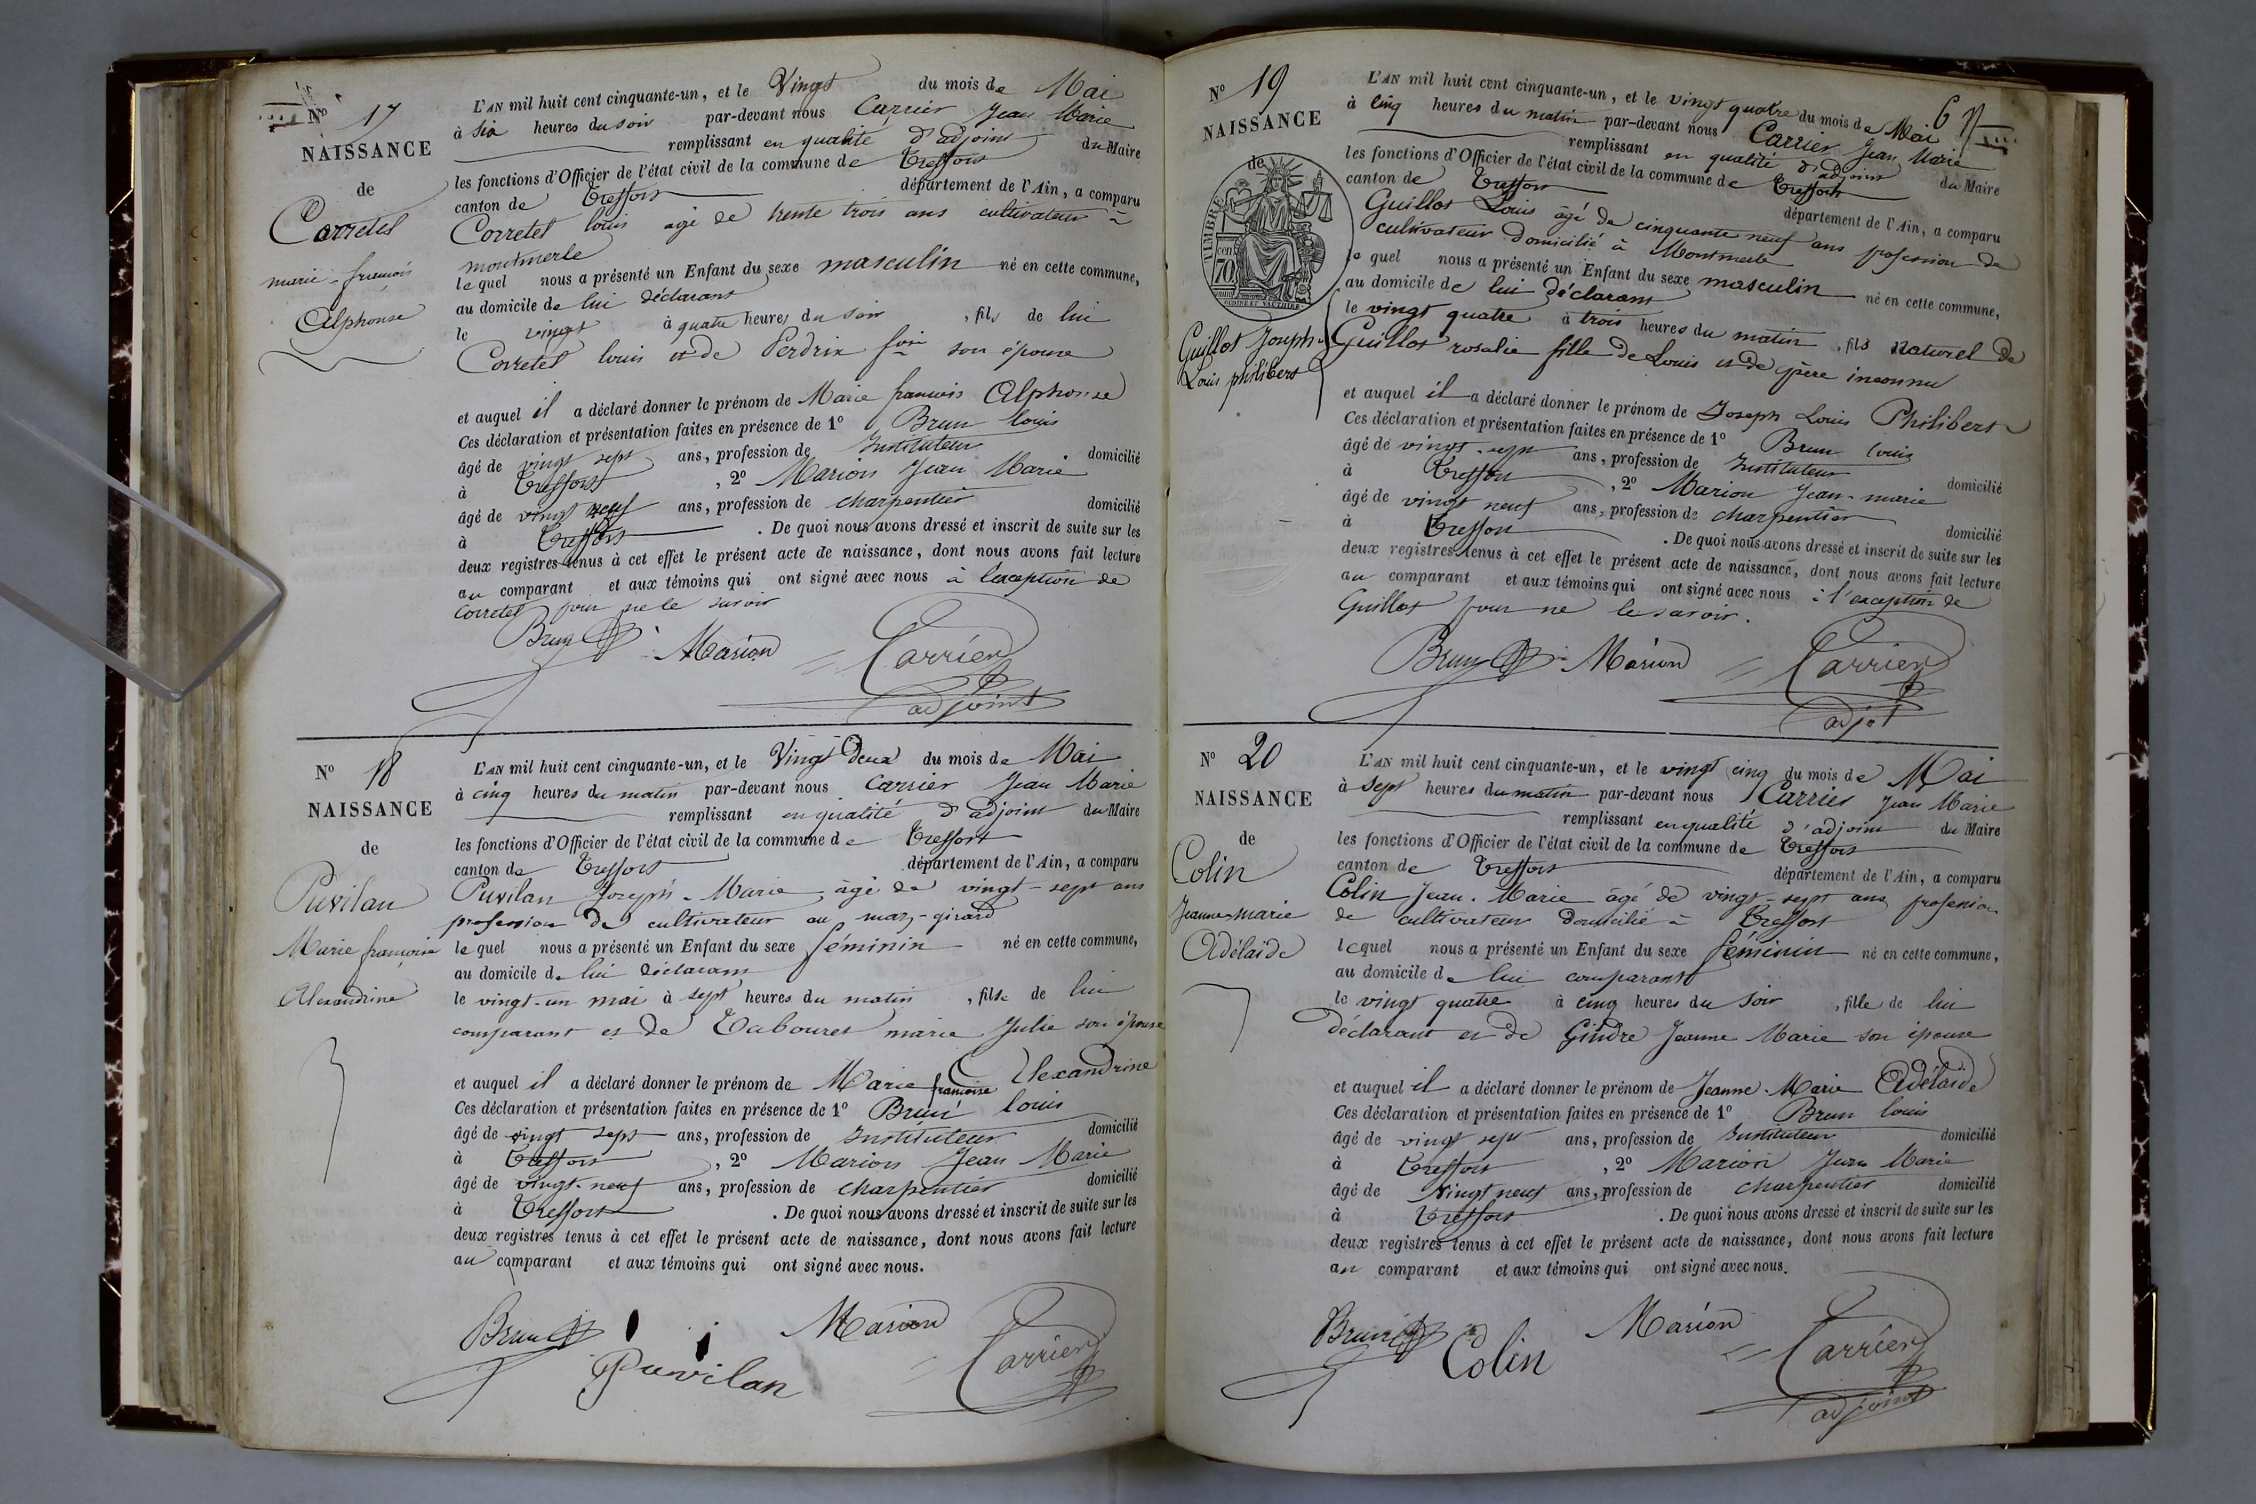 No 17
NAISSANCE
de
Corretel
marie-francois
Alphonse
L'AN mil huit cent cinquante-un, et le Vingt du mois de Mai
à six heures du soir par-devant nous Carrier Jean Marie
remplissant en qualité d'adjoint du Maire
les fonctions d'Officier de l'état civil de la commune de Treffort
canton de Treffort département de l'Ain, a comparu
Corretel louis agé de trente trois ans cultivateur à
montmerle
lequel nous a présenté un Enfant du sexe masculin né en cette commune,
au domicile de lui déclarant
le vingt à quatre heures du soir, fils de lui
Corretel louis et de Perdrix son épouse
et auquel il a déclaré donner le prénom de Marie francois Alphonse
Ces déclaration et présentation faites en présence de 1º Brun louis
âgé de vingt sept ans, profession de Instituteur domicilié
à Treffort, 2º Marion Jean Marie
âgé de vingt neuf ans, profession de charpentier domicilié
à Treffort. De quoi nous avons dressé et inscrit de suite sur les
deux registres tenus à cet effet le présent acte de naissance, dont nous avons fait lecture
au comparant et aux témoins qui ont signé avec nous à l'exception de
Corretel pour ne le savoir
Brun Marion Carrier
adjoint
No 18
NAISSANCE
de
Puvilan
Marie françoise
Alexandrine
L'AN mil huit cent cinquante-un, et le Vingt deux du mois de Mai
à cinq heures du matin par-devant nous Carrier Jean Marie
remplissant en qualité d'adjoint du Maire
les fonctions d'Officier de l'état civil de la commune de Treffort
canton de Treffort département de l'Ain, a comparu
Puvilan Joseph-Marie âgé de vingt-sept ans
profession de cultivateur au maz-girard
lequel nous a présenté un Enfant du sexe féminin né en cette commune,
au domicile de lui déclarant
le vingt-un mai à sept heures du matin, fille de lui
comparant et de Tabouret marie Julie son épouse
et auquel il a déclaré donner le prénom de Marie françoise Alexandrine
Ces déclaration et présentation faites en présence de 1º Brun louis
âgé de vingt sept ans, profession de Instituteur domicilié
à Treffort, 2º Marion Jean Marie
âgé de vingt-neuf ans, profession de charpentier domicilié
à Treffort. De quoi nous avons dressé et inscrit de suite sur les
deux registres tenus à cet effet le présent acte de naissance, dont nous avons fait lecture
au comparant et aux témoins qui ont signé avec nous.
Brun Marion Carrier
Puvilan
No 19
NAISSANCE
de
TIMBRE
70
Guillot Joseph
Louis philibert
6
L'AN mil huit cent cinquante-un, et le vingt quatre du mois de Mai
à cinq heures du matin par-devant nous Carrier Jean Marie
remplissant en qualité d'adjoint du Maire
les fonctions d'Officier de l'état civil de la commune de Treffort
canton de Treffort département de l'Ain, a comparu
Guillot Louis âgé de cinquante neuf ans profession de
cultivateur domicilié à Montmerle
lequel nous a présenté un Enfant du sexe masculin né en cette commune,
au domicile de lui déclarant
le vingt quatre à trois heures du matin, fils naturel de
Guillot rosalie fille de Louis et de père inconnu
et auquel il a déclaré donner le prénom de Joseph Louis Philibert
Ces déclaration et présentation faites en présence de 1º Brun louis
âgé de vingt-sept ans, profession de Instituteur
à Treffort, 2º Marion Jean-marie domicilié
âgé de vingt neuf ans, profession de charpentier
à Treffort domicilié
. De quoi nous avons dressé et inscrit de suite sur les
deux registres tenus à cet effet le présent acte de naissance, dont nous avons fait lecture
au comparant et aux témoins qui ont signé avec nous à l'exception de
Guillot pour ne le savoir.
Brun Marion Carrier
adjot
No 20
NAISSANCE
de
Colin
Jeanne-marie
Adélaïde
L'AN mil huit cent cinquante-un, et le vingt cinq du mois de Mai
à sept heures du matin par-devant nous Carrier Jean Marie
remplissant en qualité d'adjoint du Maire
les fonctions d'Officier de l'état civil de la commune de Treffort
canton de Treffort département de l'Ain, a comparu
Colin Jean-Marie âgé de vingt-sept ans profession
de cultivateur domicilié à Treffort
lequel nous a présenté un Enfant du sexe féminin né en cette commune,
au domicile de lui comparant
le vingt quatre à cinq heures du soir, fille de lui
déclarant et de Gindre Jeanne Marie son épouse
et auquel il a déclaré donner le prénom de Jeanne-Marie Adélaïde
Ces déclaration et présentation faites en présence de 1º Brun louis
âgé de vingt sept ans, profession de Instituteur domicilié
à Treffort, 2º Marion Jean Marie
âgé de vingt neuf ans, profession de charpentier domicilié
à Treffort. De quoi nous avons dressé et inscrit de suite sur les
deux registres tenus à cet effet le présent acte de naissance, dont nous avons fait lecture
au comparant et aux témoins qui ont signé avec nous.
Brun Colin Marion Carrier
adjoint